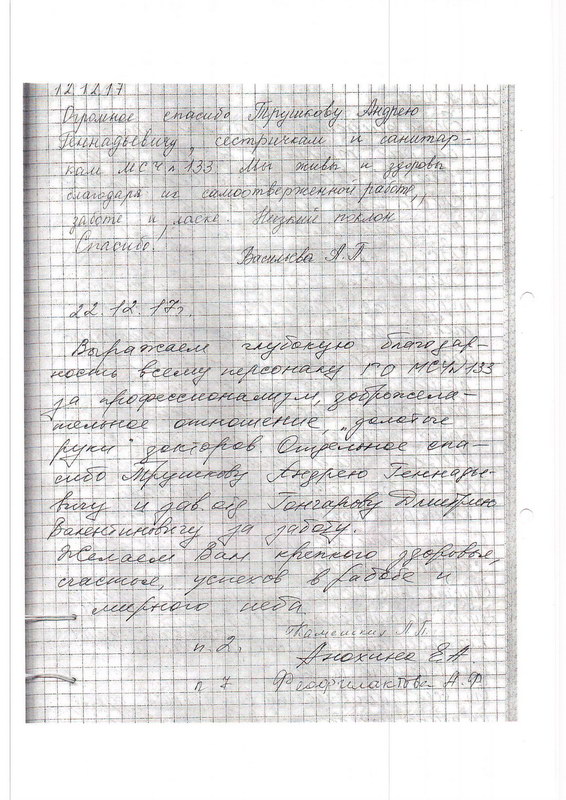 12.12.17
Огромное спасибо Трушкову Андрею
Геннадьевичу, сестричкам и санитар-
кам МСЧ № 133 Мы живы и здоровы
благодаря их самоотверженной работе,
заботе и ласке. Низкий поклон
Спасибо.
Васильева А.П
22.12.17г.
Выражаем глубокую благодар-
ность всему персоналу ГО МСЧ№133
за профессионализм, доброжела-
тельное отношение, „золотые
руки" докторов. Отдельное спа-
сибо Трушкову Андрею Геннадье-
вичу и зав.отд Гончарову Дмитрию
Валентиновичу за заботу.
Желаем Вам крепкого здоровья,
счастья, успехов в работе и
мирного неба.
п. 2.
Анохина Е А
п 7 Феофилактова А. Ф